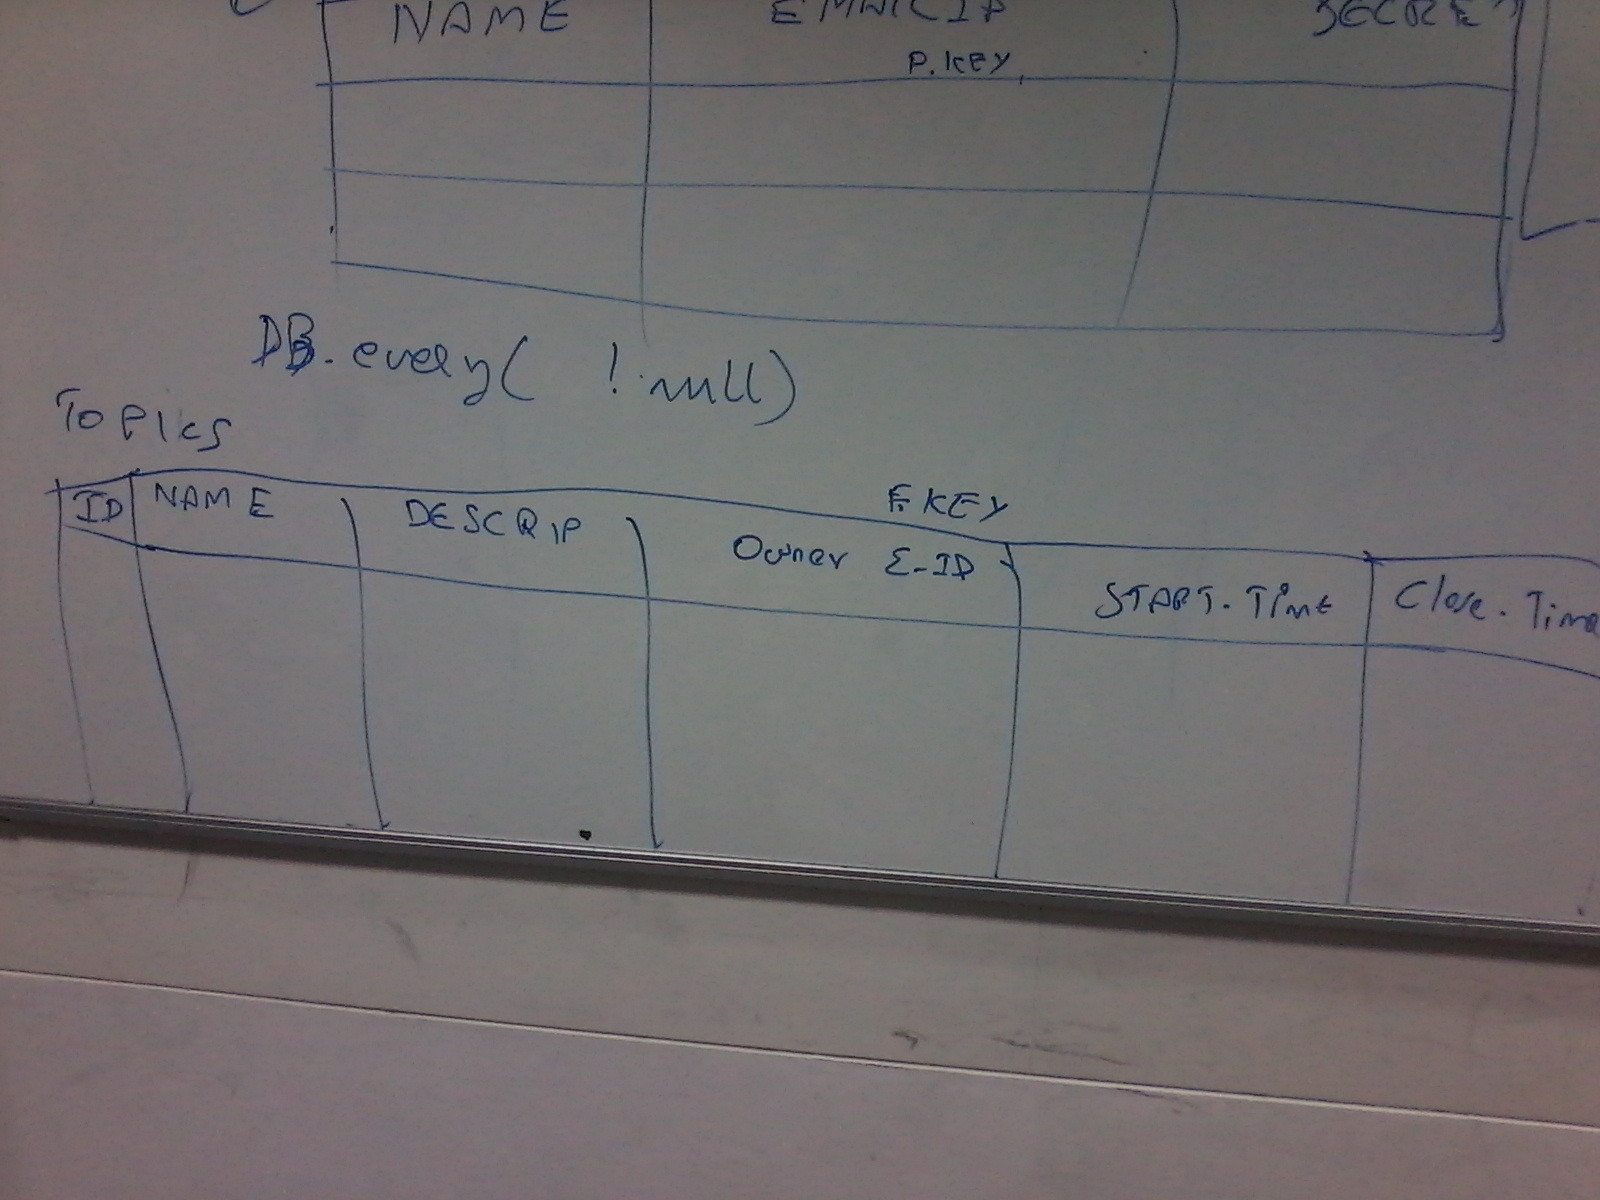 NAME
P.KEY
DB.every( !null)
TOPICS
ID NAME DESCRIP F.KEY Owner E-ID START.TIME Close.Time